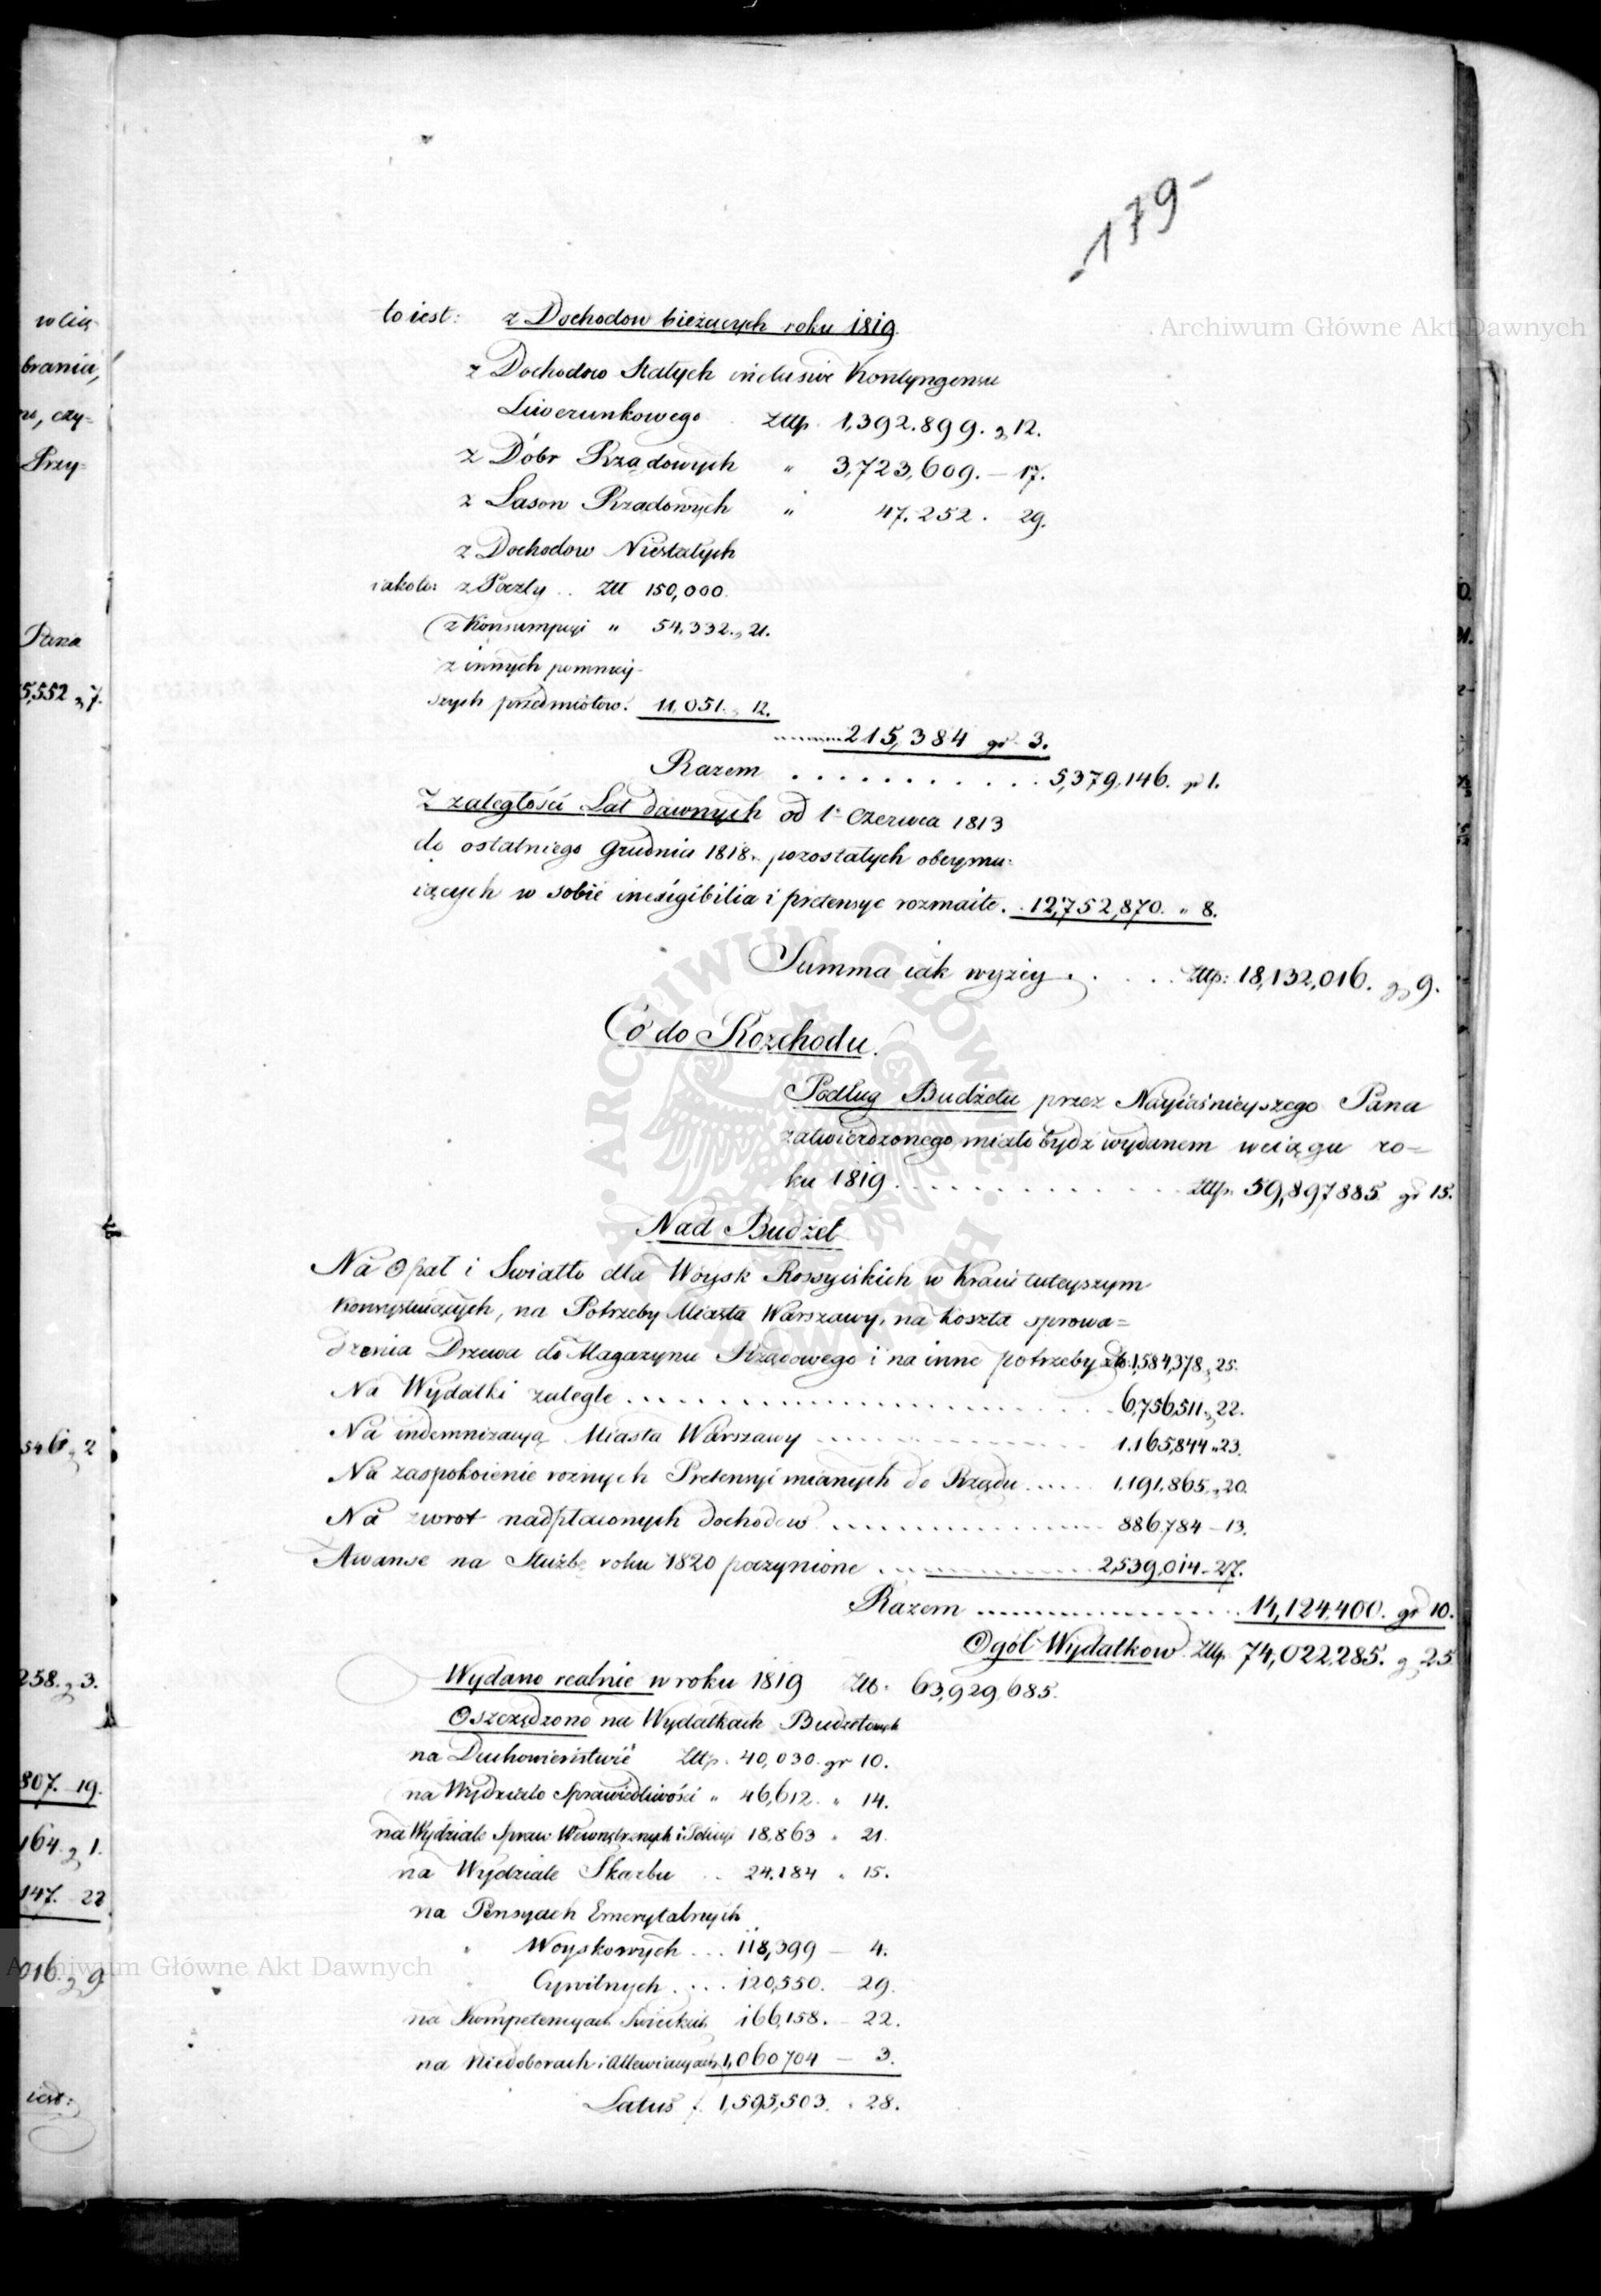 -179-
to iest: z Dochodow bieżących roku 1819.
z Dochodow Stałych inclusive Kontyngensu
Liwerunkowego Złtp. 1,392.899. g 12.
z Dóbr Rządowych " 3,723,609. — 17.
z Lasow Rządowych " 47.252. 29.
z Dochodow Niestałych
iakoto: z Poczty .. Złt 150,000.
z Konsumpcyi " 54.332. „ 21.
z innych pomniey-
szych przedmiotow. 11,051. „ 12.
215,384 gr 3.
Razem . . . . . . . . . . . 5,379,146. gr 1.
Z zaległości Lat dawnych od 1o Czerwca 1813
do ostatniego Grudnia 1818. pozostałych obeymu-
iących w sobie inexigibilia i pretensye rozmaite. . 12,752,870. " 8.
Summa iak wyżey . . . . Złtp: 18,132,016. g 9.
Co do Rozchodu.
Podług Budżetu przez Nayiaśnieyszego Pana
zatwierdzonego, miało bydź wydanem w ciągu ro=
ku 1819 . . . . . . . . . . . Złtp. 59,897885. gr 15.
Nad Budżet
Na Opał i Swiatło dla Woysk Rossyiskich w Kraiu tuteyszym
Konsystuiących, na Potrzeby Miasta Warszawy, na koszta sprowa=
dzenia Drzewa do Magazynu Rządowego i na inne potrzeby złt. 1,584,378 „ 25.
Na Wydatki zaległe . . . . . . . . . . . 6,756,511. „ 22.
Na indemnizacyą Miasta Warszawy . . . . . . . 1.165,844 „ 23.
Na zaspokoienie rożnych Pretensyi mianych do Rządu . . . . . 1,191.865. „ 20.
Na zwrot nadpłaconych dochodow . . . . . . . 886.784 — 13.
Awanse na Służbę roku 1820 poczynione . . . . . . . 2,539,014 - 27.
Razem . . . . . . . . . . 14,124,400. gr 10.
Ogół Wydatkow Złtp. 74,022,285. g 25
Wydano realnie w roku 1819 Złt. 63,929,685.
Oszczędzono na Wydatkach Budżetowych
na Duchowieństwie Złtp. 40,030. gr 10.
na Wydziale Sprawiedliwości " 46,612. " 14.
na Wydziale Spraw Wewnętrznych i Policyi 18,863 " 21.
na Wydziale Skarbu .. 24.184 " 15.
na Pensyach Emerytalnych
" Woyskowych ... 118,399 — 4.
Cywilnych .... 120,550. 29.
na Kompetencyach Swieckich 166,158. — 22.
na Niedoborach i Allewiacyach 1,060704 — 3.
Latus f. 1,595,503. " 28.
w cią-
brania,
czy-
Przy-
Pana
5,552 „ 7.
546 „ 2
258. g 3.
807. — 19.
164. g 1.
147. 22
016. g 9
iest:
Archiwum Główne Akt Dawnych
Archiwum Główne Akt Dawnych
ARCHIWUM GŁÓWNE AKT DAWNYCH